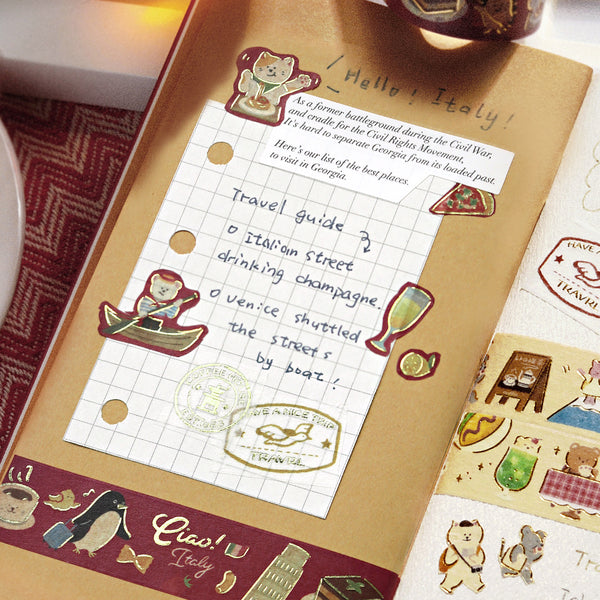 Hello! Italy!
As a former battleground during the Civil War,
and cradle for the Civil Rights Movement,
It's hard to separate Georgia from its loaded past.
Here's our list of the best places.
to visit in Georgia.
Travel guide
Italian street
drinking champagne.
Venice shuttled
the streets
by boat!
HAVE A NICE TRIP
TRAVEL
Ciao!
Italy
HAVE A
TRAVEL